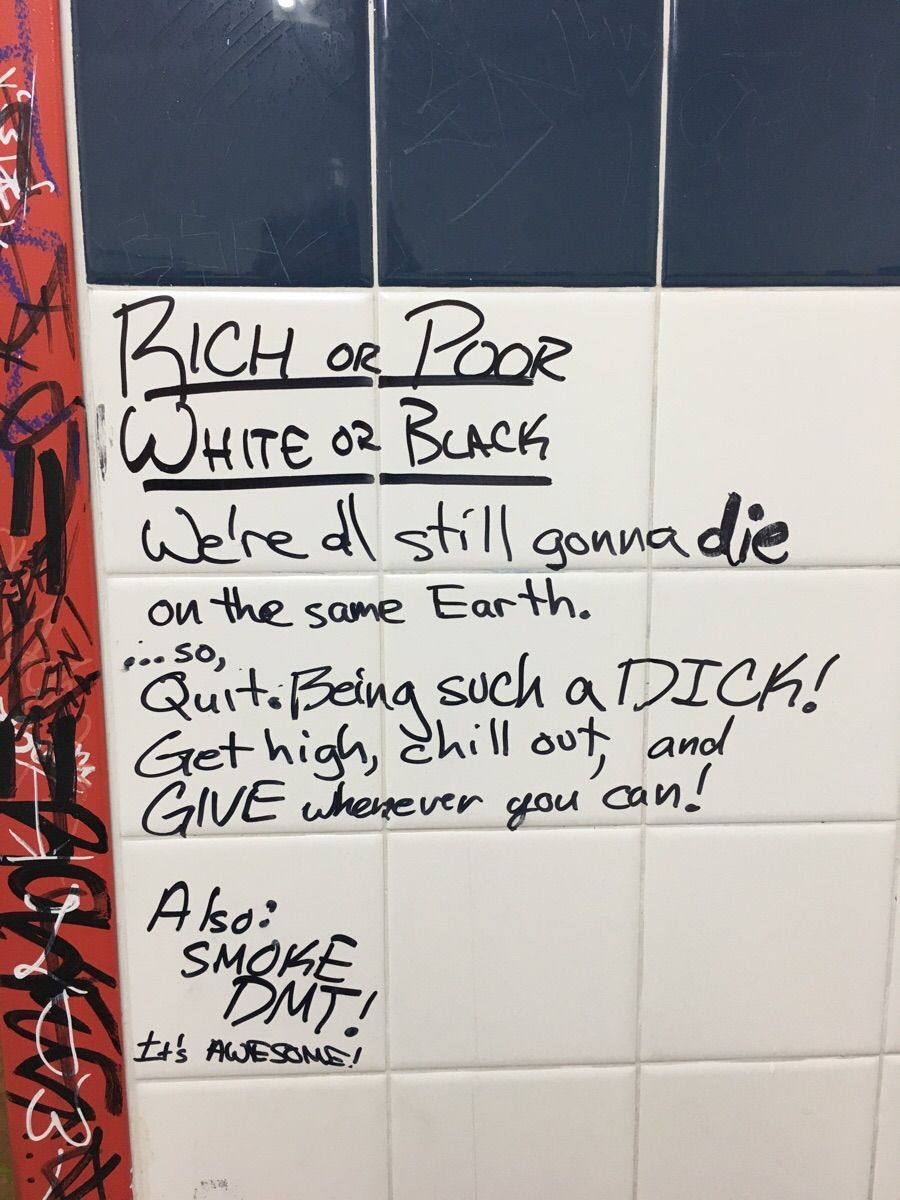 RICH OR POOR
WHITE OR BLACK
We're all still gonna die
on the same Earth.
...so,
Quit. Being such a DICK!
Get high, chill out, and
GIVE whenever you can!
Also:
SMOKE
DMT!
It's AWESOME!